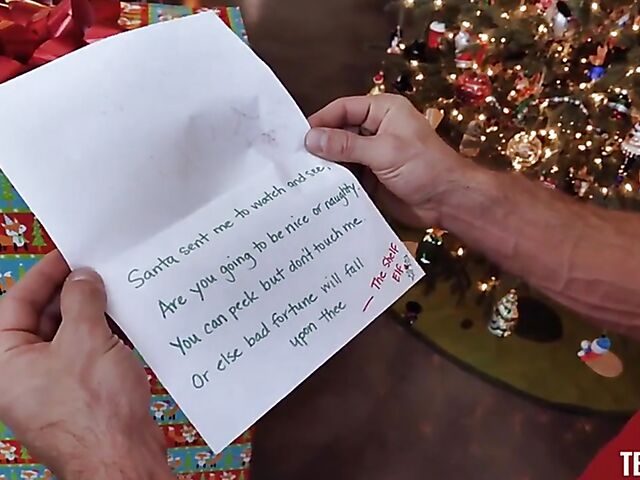 Santa sent me to watch and see,
Are you going to be nice or naughty,
You can peek but don't touch me.
Or else bad fortune will fall
upon thee
— The Shelf
Elf
TE